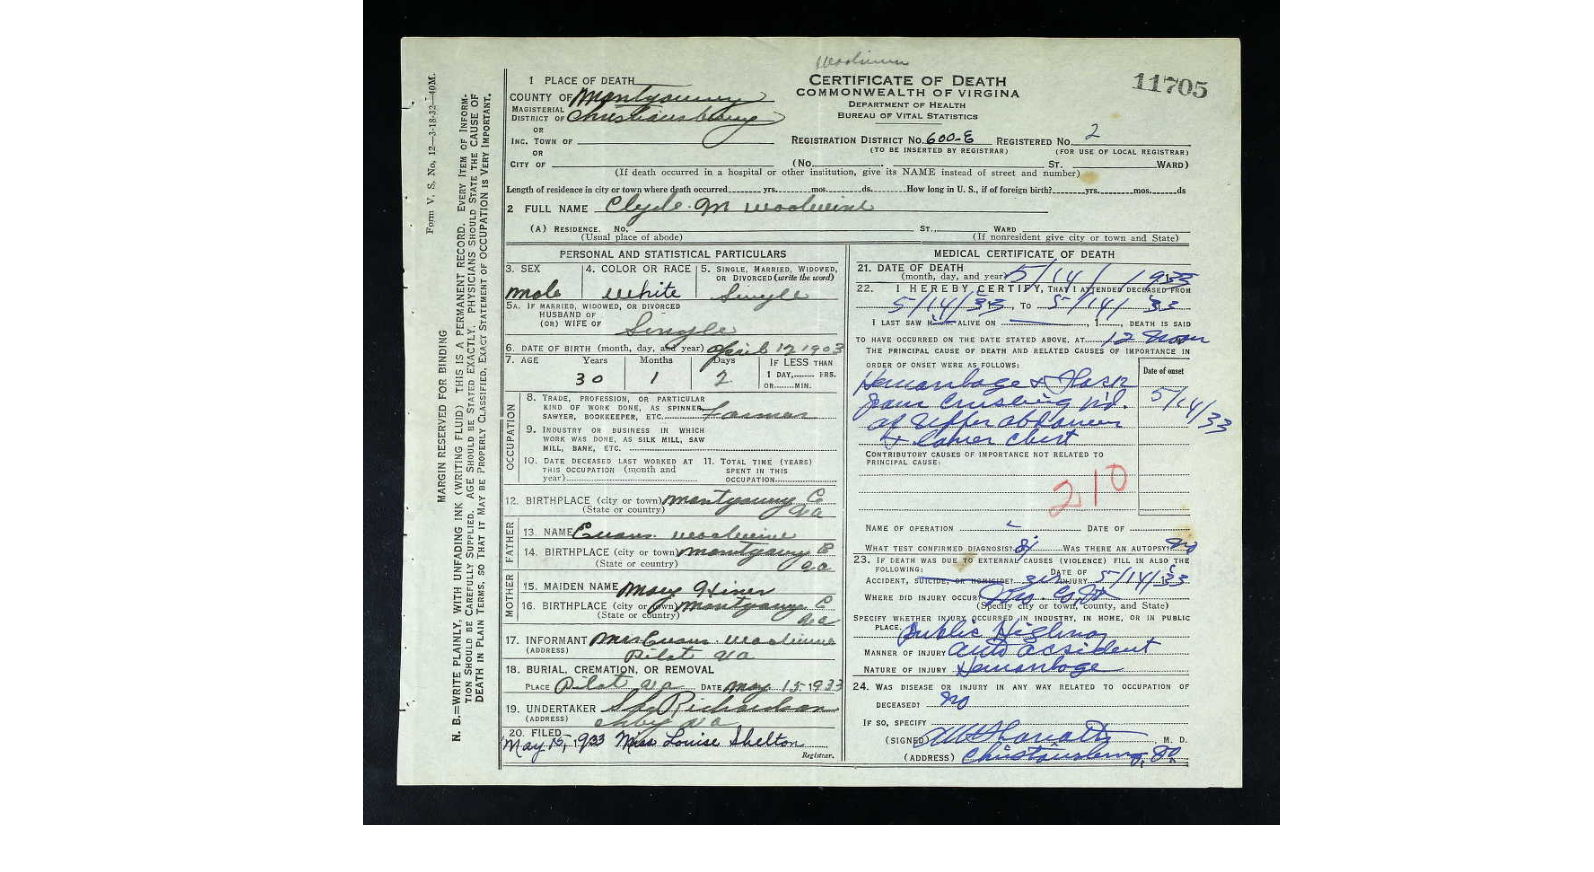 Woolwine
1 PLACE OF DEATH
CERTIFICATE OF DEATH
COMMONWEALTH OF VIRGINA
DEPARTMENT OF HEALTH
BUREAU OF VITAL STATISTICS
11705
COUNTY OF Montgomery
MAGISTERIAL DISTRICT OF Christiansburg
OR
INC. TOWN OF
OR
CITY OF
REGISTRATION DISTRICT NO. 600-E REGISTERED NO. 2
(TO BE INSERTED BY REGISTRAR) (FOR USE OF LOCAL REGISTRAR)
(No. ST. WARD)
(If death occurred in a hospital or other institution, give its NAME instead of street and number)
Length of residence in city or town where death occurred yrs. mos. ds. How long in U. S., if of foreign birth? yrs. mos. ds
2 FULL NAME Clyde M Woolwine
(A) RESIDENCE. No. ST., WARD
(Usual place of abode) (If nonresident give city or town and State)
PERSONAL AND STATISTICAL PARTICULARS
3. SEX male
4. COLOR OR RACE White
5. SINGLE, MARRIED, WIDOWED, OR DIVORCED (write the word) Single
5A. IF MARRIED, WIDOWED, OR DIVORCED
HUSBAND OF
(OR) WIFE OF Single
6. DATE OF BIRTH (month, day, and year) April 12 1903
7. AGE Years Months Days IF LESS THAN
30 1 2 1 DAY, HRS.
OR MIN.
OCCUPATION
8. TRADE, PROFESSION, OR PARTICULAR
KIND OF WORK DONE, AS SPINNER,
SAWYER, BOOKKEEPER, ETC. Farmer
9. INDUSTRY OR BUSINESS IN WHICH
WORK WAS DONE, AS SILK MILL, SAW
MILL, BANK, ETC.
10. DATE DECEASED LAST WORKED AT
THIS OCCUPATION (month and
year)
11. TOTAL TIME (YEARS)
SPENT IN THIS
OCCUPATION
12. BIRTHPLACE (city or town) Montgomery C
(State or country) Va
FATHER
13. NAME Evans Woolwine
14. BIRTHPLACE (city or town) Montgomery C
(State or country) Va
MOTHER
15. MAIDEN NAME Mary
16. BIRTHPLACE (city or town) Montgomery C
(State or country) Va
17. INFORMANT Mrs Evans Woolwine
(ADDRESS) Pilot Va
18. BURIAL, CREMATION, OR REMOVAL
PLACE Pilot Va DATE May 15, 1933
19. UNDERTAKER Richardson
(ADDRESS) Va
20. FILED May 15, 1933 Miss Louise Shelton
Registrar.
MEDICAL CERTIFICATE OF DEATH
21. DATE OF DEATH
(month, day, and year) 5/14/1933
22. I HEREBY CERTIFY, THAT I ATTENDED DECEASED FROM
5/14/33, TO 5/14/33
I LAST SAW H ALIVE ON , 1 , DEATH IS SAID
TO HAVE OCCURRED ON THE DATE STATED ABOVE, AT 12 Noon
THE PRINCIPAL CAUSE OF DEATH AND RELATED CAUSES OF IMPORTANCE IN
ORDER OF ONSET WERE AS FOLLOWS:
Date of onset
Hemorrhage &
from crushing 5/14/33
of upper abdomen
& lower chest
CONTRIBUTORY CAUSES OF IMPORTANCE NOT RELATED TO
PRINCIPAL CAUSE:
210
NAME OF OPERATION DATE OF
WHAT TEST CONFIRMED DIAGNOSIS? WAS THERE AN AUTOPSY? no
23. IF DEATH WAS DUE TO EXTERNAL CAUSES (VIOLENCE) FILL IN ALSO THE
FOLLOWING:
ACCIDENT, SUICIDE, OR HOMICIDE? DATE OF INJURY 5/14/33
WHERE DID INJURY OCCUR?
(Specify city or town, county, and State)
SPECIFY WHETHER INJURY OCCURRED IN INDUSTRY, IN HOME, OR IN PUBLIC
PLACE. Public Highway
MANNER OF INJURY auto accident
NATURE OF INJURY Hemorrhage
24. WAS DISEASE OR INJURY IN ANY WAY RELATED TO OCCUPATION OF
DECEASED? No
IF SO, SPECIFY
(SIGNED) , M. D.
(ADDRESS) Christiansburg, Va
Form V. S. No. 12—3-18-32—40M.
MARGIN RESERVED FOR BINDING
N. B.—WRITE PLAINLY, WITH UNFADING INK (WRITING FLUID). THIS IS A PERMANENT RECORD. EVERY ITEM OF INFORM-
TION SHOULD BE CAREFULLY SUPPLIED. AGE SHOULD BE STATED EXACTLY. PHYSICIANS SHOULD STATE THE CAUSE OF
DEATH IN PLAIN TERMS, SO THAT IT MAY BE PROPERLY CLASSIFIED. EXACT STATEMENT OF OCCUPATION IS VERY IMPORTANT.